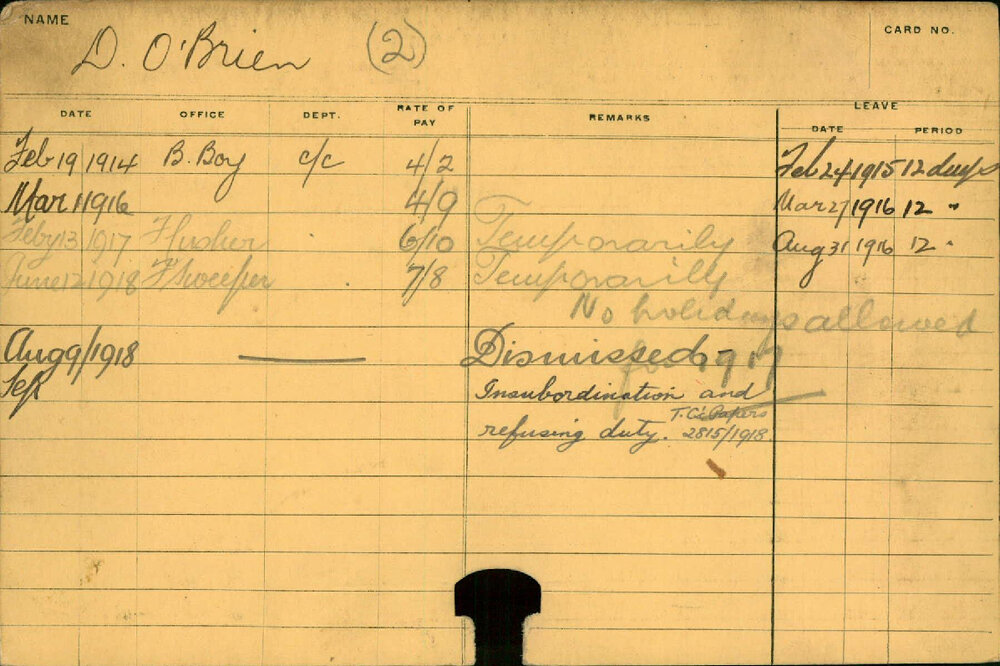 NAME
D. O'Brien (2)
CARD NO.
DATE OFFICE DEPT. RATE OF PAY REMARKS LEAVE
DATE PERIOD
Feb 19 1914 B. Boy c/c 4/2 Feb 24 1915 12 days
Mar 1 1916 4/9 Mar 27 1916 12 "
Feby 13 1917 Flusher 6/10 Temporarily Aug 31 1916 12 "
June 12 1918 Sweeper 7/8 Temporarily
No holidays allowed
Aug 9/1918 Dismissed for 1917
Sep Insubordination and
T.C's Papers
refusing duty. 2815/1918